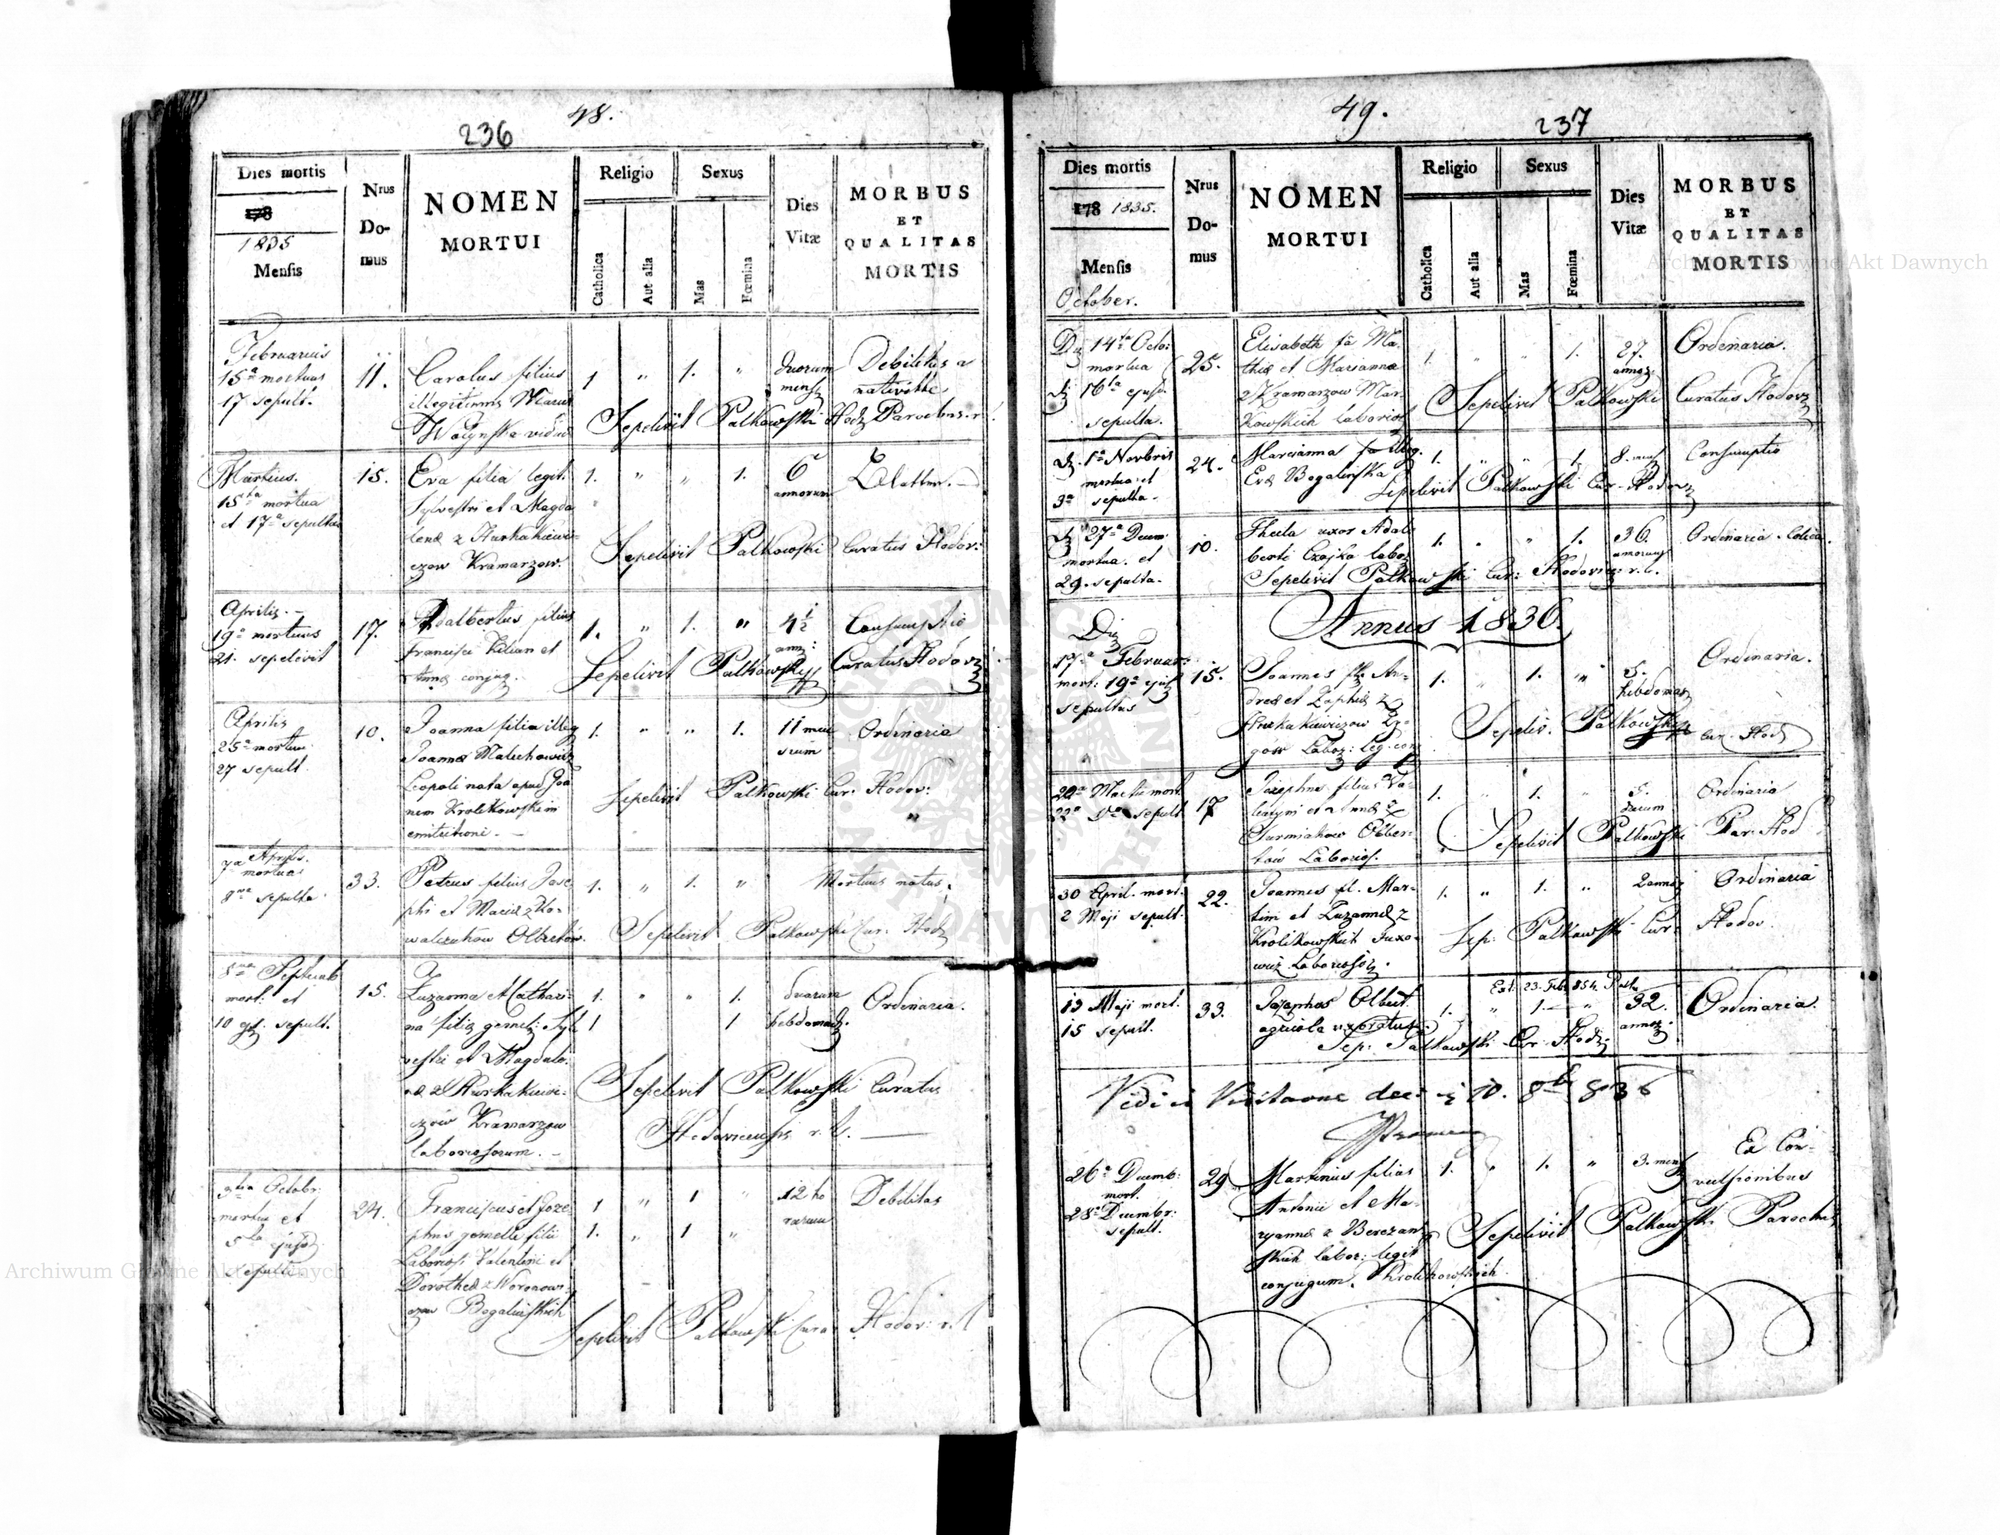 48.
236
Dies mortis
178
1835
Mensis
Nrus
Do-
mus
NOMEN
MORTUI
Religio
Catholica
Aut alia
Sexus
Mas
Fœmina
Dies
Vitæ
MORBUS
ET
QUALITAS
MORTIS
Februarius
15a mortuus
17 sepult.
11.
Carolus filius
illegitimus Mariæ
viduæ
1 " 1. "
duorum
mens
Debilitas a
nativitate
Sepelivit Palkowski Parochus
Martius.
15ta mortua
et 17a sepulta
15.
Eva filia legit.
Sylvestri et Magda
lenæ z
czow Kramarzow.
1. " " 1.
6
annorum
Sepelivit Palkowski Curatus Hodov:
Aprilis.
19a mortuus
21. sepelivit
17.
Adalbertus filius
Francisci Kilian et
Annæ conjug.
1. " 1. "
4½
ann:
Consumptio
Sepelivit Palkowski Curatus Hodov
Aprilis
25a mortua
27 sepult.
10.
Joanna filia illeg
Joannæ
Leopoli nata apud Joa
nem Krolikowski in
1. " " 1.
11 men
sium
Ordinaria
Sepelivit Palkowski Cur: Hodov:
Aprilis
7a mortua
8va sepulta
33.
Petrus filius Jose
phi et
walczukow Olbertow.
1. " 1. "
Mortuus natus.
Sepelivit Palkowski Cur: Hod
8va Septemb
mort: et
10 ej. sepult.
15.
Zuzanna et Cathari-
na filiæ gemel: Syl
vestri et Magdale
næ z
czow Kramarzow
laboriosorum.
1. " " 1.
1 1
duarum
hebdomad.
Ordinaria.
Sepelivit Palkowski Curatus
Hodoviensis r. l.
3tia Octobr
mortui et
5ta ejusd
sepulti
24.
Franciscus et Joze
phus gemelli filii
Laborios. Valentini et
Dorotheæ z Woronow-
czow Bogalinskich
1 " 1 "
1. " 1 "
12 ho
rarum
Debilitas
Sepelivit Palkowski Cura Hodov: r. l
49.
237
Dies mortis
178 1835.
Mensis
October.
Nrus
Do-
mus
NOMEN
MORTUI
Religio
Catholica
Aut alia
Sexus
Mas
Fœmina
Dies
Vitæ
MORBUS
ET
QUALITAS
MORTIS
14ta Octo:
mortua
16ta ejusd
sepulta.
25.
Elisabeth fa Ma-
thiæ et Marianna
z Kramarzow Mar-
kowskich laborios
1. " " 1.
27.
annor
Ordinaria.
Sepelivit Palkowski Curatus Hodov
1a Novbris
mortua et
3a sepulta.
24.
Marianna fa illeg.
Evæ Bogalinska
1. " " 1.
8. mens
Consumptio
Sepelivit Palkowski Cur. Hodov
27a Decem
mortua et
29. sepulta.
10.
Thecla uxor Adal
berti Czajka labo
1. " " 1.
36.
annorum
Ordinaria Colica
Sepelivit Palkowski Cur: Hodovien: r. l.
Annus 1836.
Die
17a Februar:
mort: 19a ejus
sepultus
15.
Joannes fil. An-
dreæ et Sophiæ z
gow Labor: leg. con
1. " 1. "
5.
hebdomad
Ordinaria.
Sepeliv. Palkowski Cur. Hod
Martii mort.
22a sepult
17
Josephus filius Va-
lentyni et Annæ z
Surmiakow Olber-
tów Laborios.
1. " 1. "
5.
dierum
Ordinaria
Sepelivit Palkowski Par. Hod
30 April. mort.
2 Maji sepult.
22.
Joannes fil. Mar-
tini et Zuzannæ z
Krolikowskich
Laborioso
1. " 1. "
2 annor
Ordinaria
Sep: Palkowski Cur: Hodov
13 Maji mort.
15 sepult.
33.
Jozephus Olbert
agricola uxoratus
Ext. 23. Feb. 854.
1. " 1. "
32.
annor
Ordinaria.
Sep: Palkowski Cur. Hod:
Vidi in Visitaone dec: 10. 8br 836
26a Decemb:
mort.
28a Decembr:
sepult.
29
Martinus filius
Antonii et Ma-
ryannæ z Berezan
skich labor: legit
conjugum. Krolikowskich
1. " 1. "
3. mens
Ex Con-
vulsionibus
Sepelivit Palkowski Parochus
Archiwum Główne Akt Dawnych
Archiwum Główne Akt Dawnych
ARCHIWUM GŁÓWNE AKT DAWNYCH